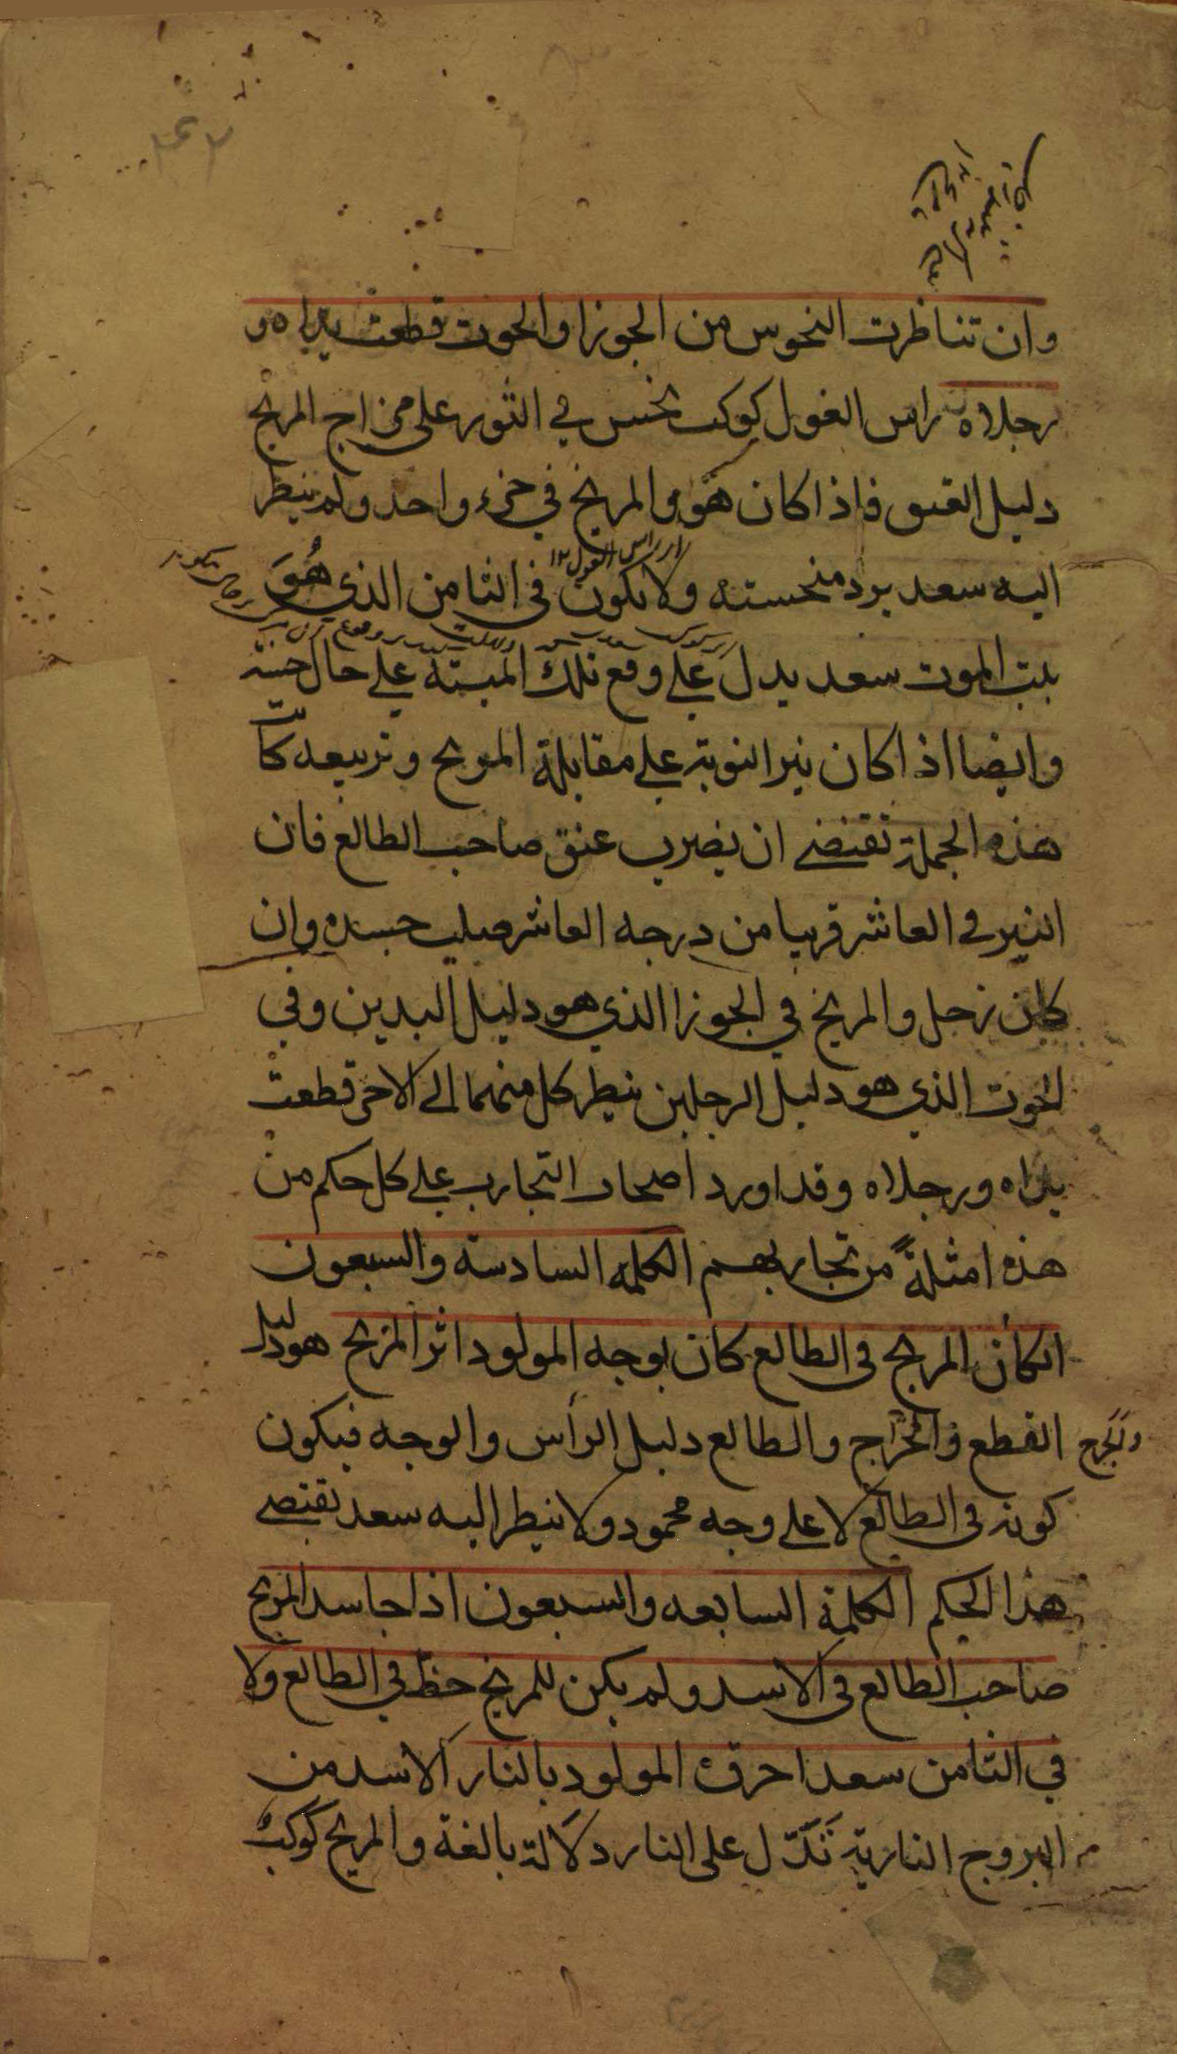 وان تناظرت النحوس من الجوزا والحوت قطعت يداه و
رجلاه راس الغول كوكب نحس في الثور على مزاج المريخ
دليل العنق فاذا كان هو والمريخ في جزء واحد ولم ينظر
اليه سعد يرد منحسته ولا يكون في الثامن الذي هُوَ
بيت الموت سعد يدل على وقع تلك الميتة على حال حسنه
وايضا اذا كان نير النوبة على مقابلة المريخ وتربيعه كانت
هذه الجملة تقتضي ان يضرب عنق صاحب الطالع فان
النير في العاشر قريبا من درجه العاشر صلب جسده وان
كان زحل والمريخ في الجوزا الذي هو دليل اليدين وفي
الحوت الذي هو دليل الرجلين ينظر كل منهما الى الاخر قطعت
يداه ورجلاه وقد اورد اصحاب التجارب على كل حكم من
هذه امثلةً من تجاربهم الكلمة السادسة والسبعون
ان كان المريخ في الطالع كان بوجه المولود اثر المريخ هو دليل
القطع والجراح والطالع دليل الرأس والوجه فيكون
كونه في الطالع لا على وجه محمود ولا ينظر اليه سعد تقتضي
هذا الحكم الكلمة السابعه والسبعون اذا جاسد المريخ
صاحب الطالع في الاسد ولم يكن للمريخ حظ في الطالع ولا
في الثامن سعد احرق المولود بالنار الاسد من
البروج النارية تَدَلّ على النار دلالة بالغة والمريخ كوكب